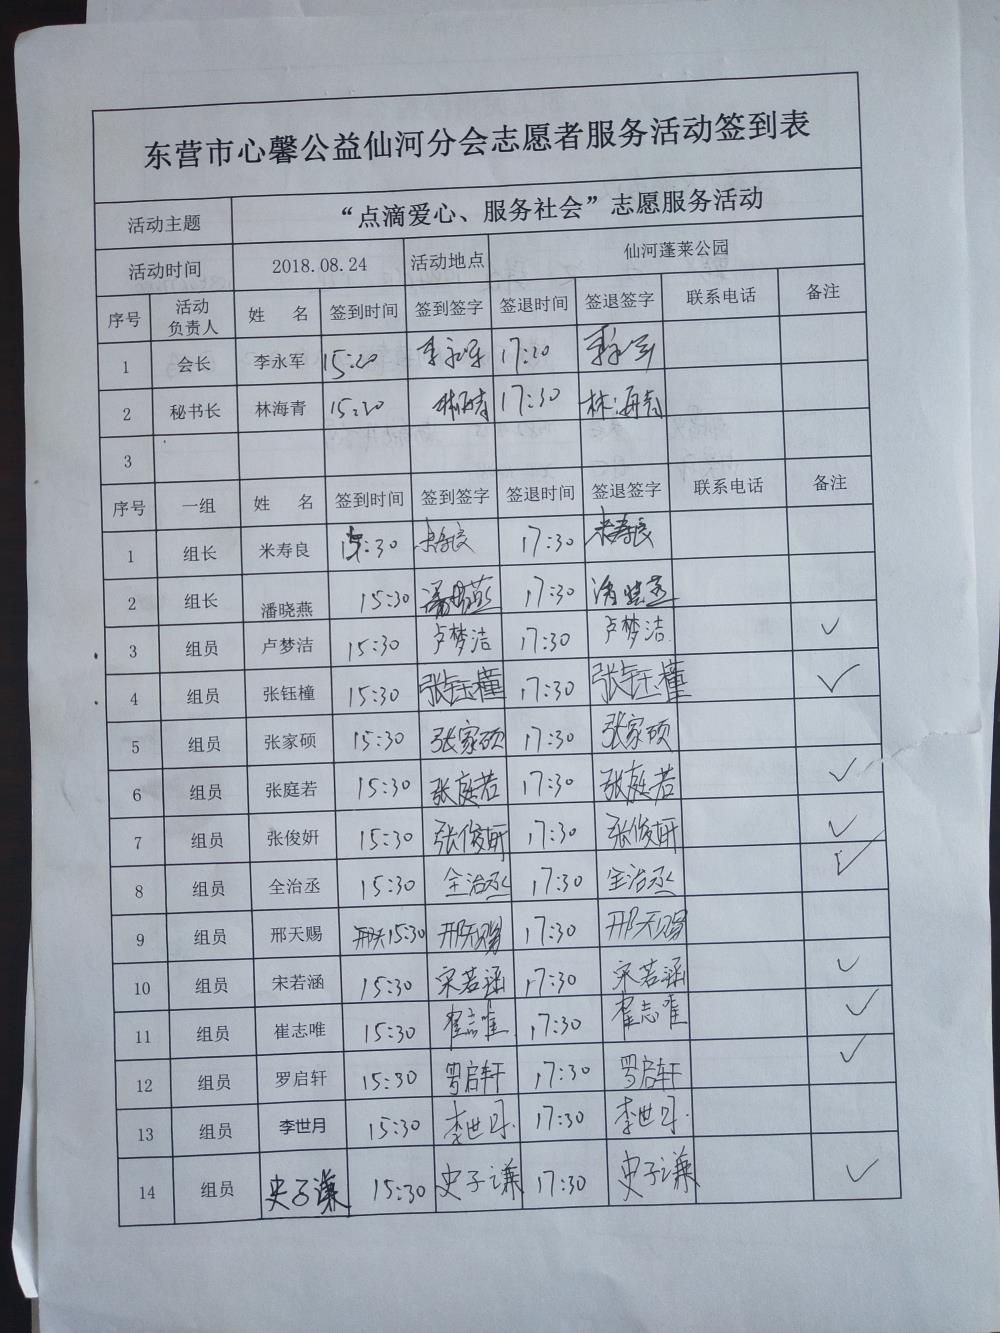 东营市心馨公益仙河分会志愿者服务活动签到表
活动主题 “点滴爱心、服务社会”志愿服务活动
活动时间 2018.08.24 活动地点 仙河蓬莱公园
序号 活动负责人 姓 名 签到时间 签到签字 签退时间 签退签字 联系电话 备注
1 会长 李永军 15:20 李永军 17:20 李永军
2 秘书长 林海青 15:20 林海青 17:30 林海青
3
序号 一组 姓 名 签到时间 签到签字 签退时间 签退签字 联系电话 备注
1 组长 米寿良 15:30 米寿良 17:30 米寿良
2 组长 潘晓燕 15:30 潘晓燕 17:30 潘晓燕
3 组员 卢梦洁 15:30 卢梦洁 17:30 卢梦洁 ✓
4 组员 张钰橦 15:30 张钰橦 17:30 张钰橦 ✓
5 组员 张家硕 15:30 张家硕 17:30 张家硕
6 组员 张庭若 15:30 张庭若 17:30 张庭若 ✓
7 组员 张俊妍 15:30 张俊妍 17:30 张俊妍 ✓
8 组员 全治丞 15:30 全治丞 17:30 全治丞 ✓
9 组员 邢天赐 15:30 邢天赐 17:30 邢天赐
10 组员 宋若涵 15:30 宋若涵 17:30 宋若涵 ✓
11 组员 崔志唯 15:30 崔志唯 17:30 崔志唯 ✓
12 组员 罗启轩 15:30 罗启轩 17:30 罗启轩 ✓
13 组员 李世月 15:30 李世月 17:30 李世月
14 组员 史子谦 15:30 史子谦 17:30 史子谦 ✓